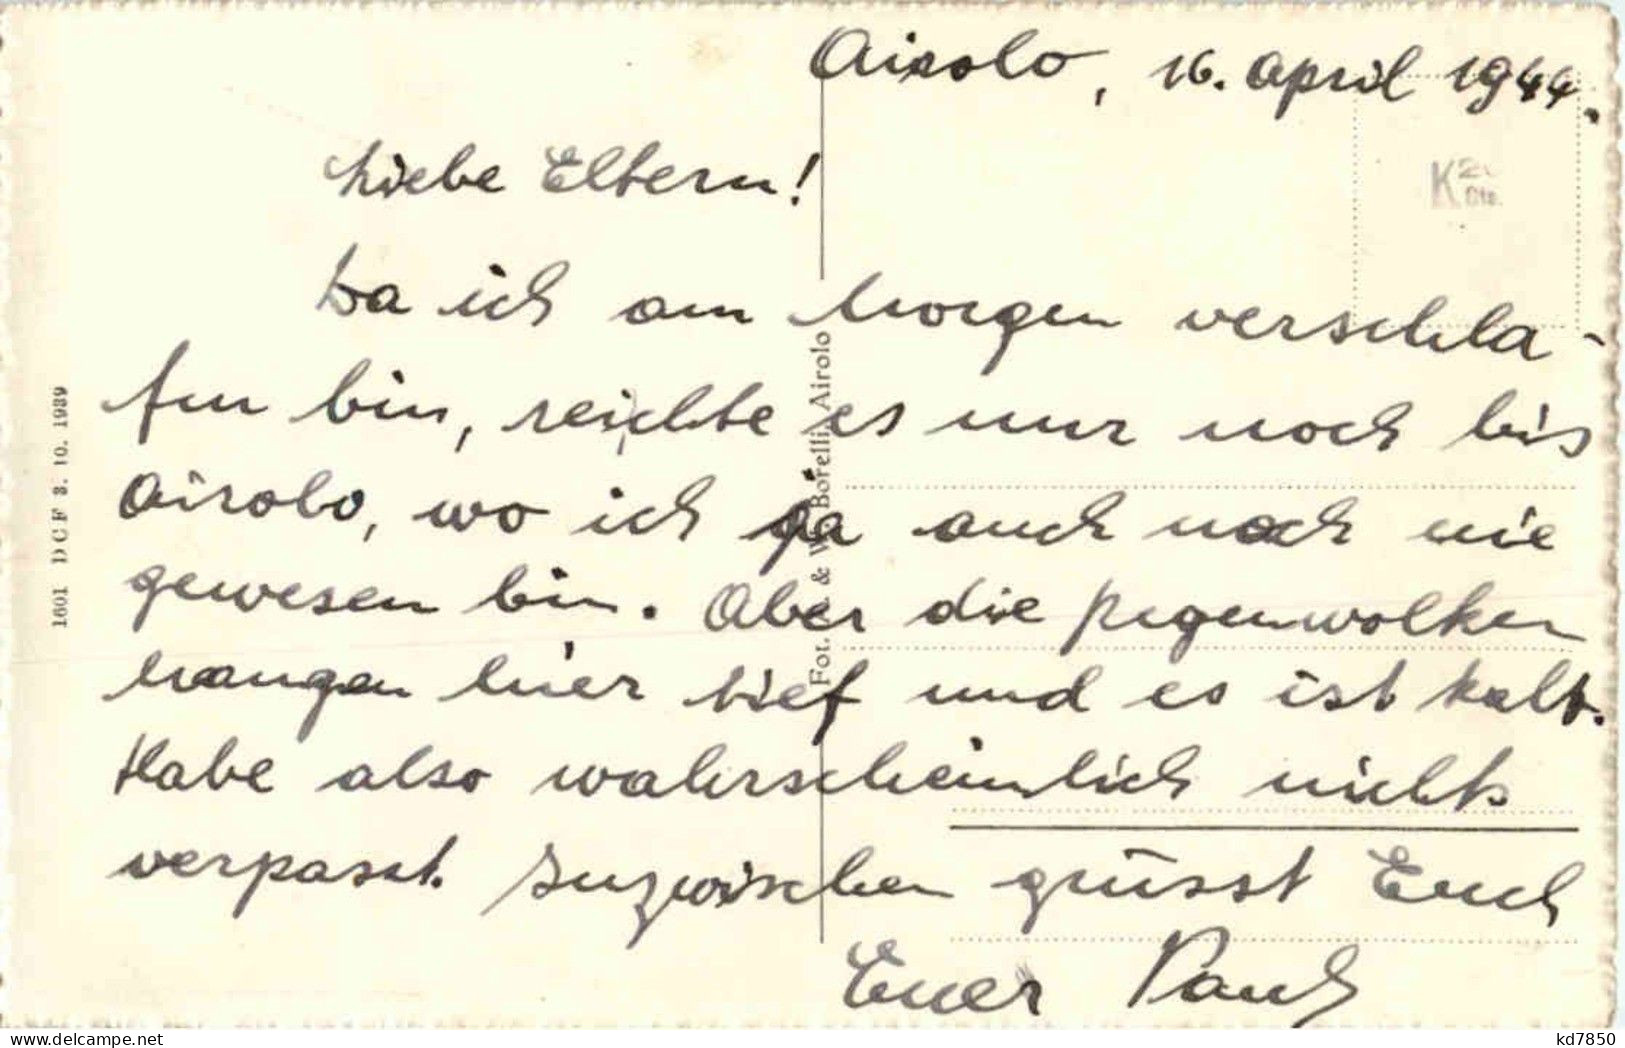 Airolo, 16. April 1944.
Liebe Eltern!
Da ich am Morgen verschla-
fen bin, reichte es nur noch bis
Airolo, wo ich ja auch noch nie
gewesen bin. Aber die Regenwolken
hangen hier tief und es ist kalt.
Habe also wahrscheinlich nichts
verpasst. Inzwischen grüsst Euch
Euer
1601 DCF 3. 10. 1939
Fot. & Borelli, Airolo
K
Cts.
delcampe.net
kd7850